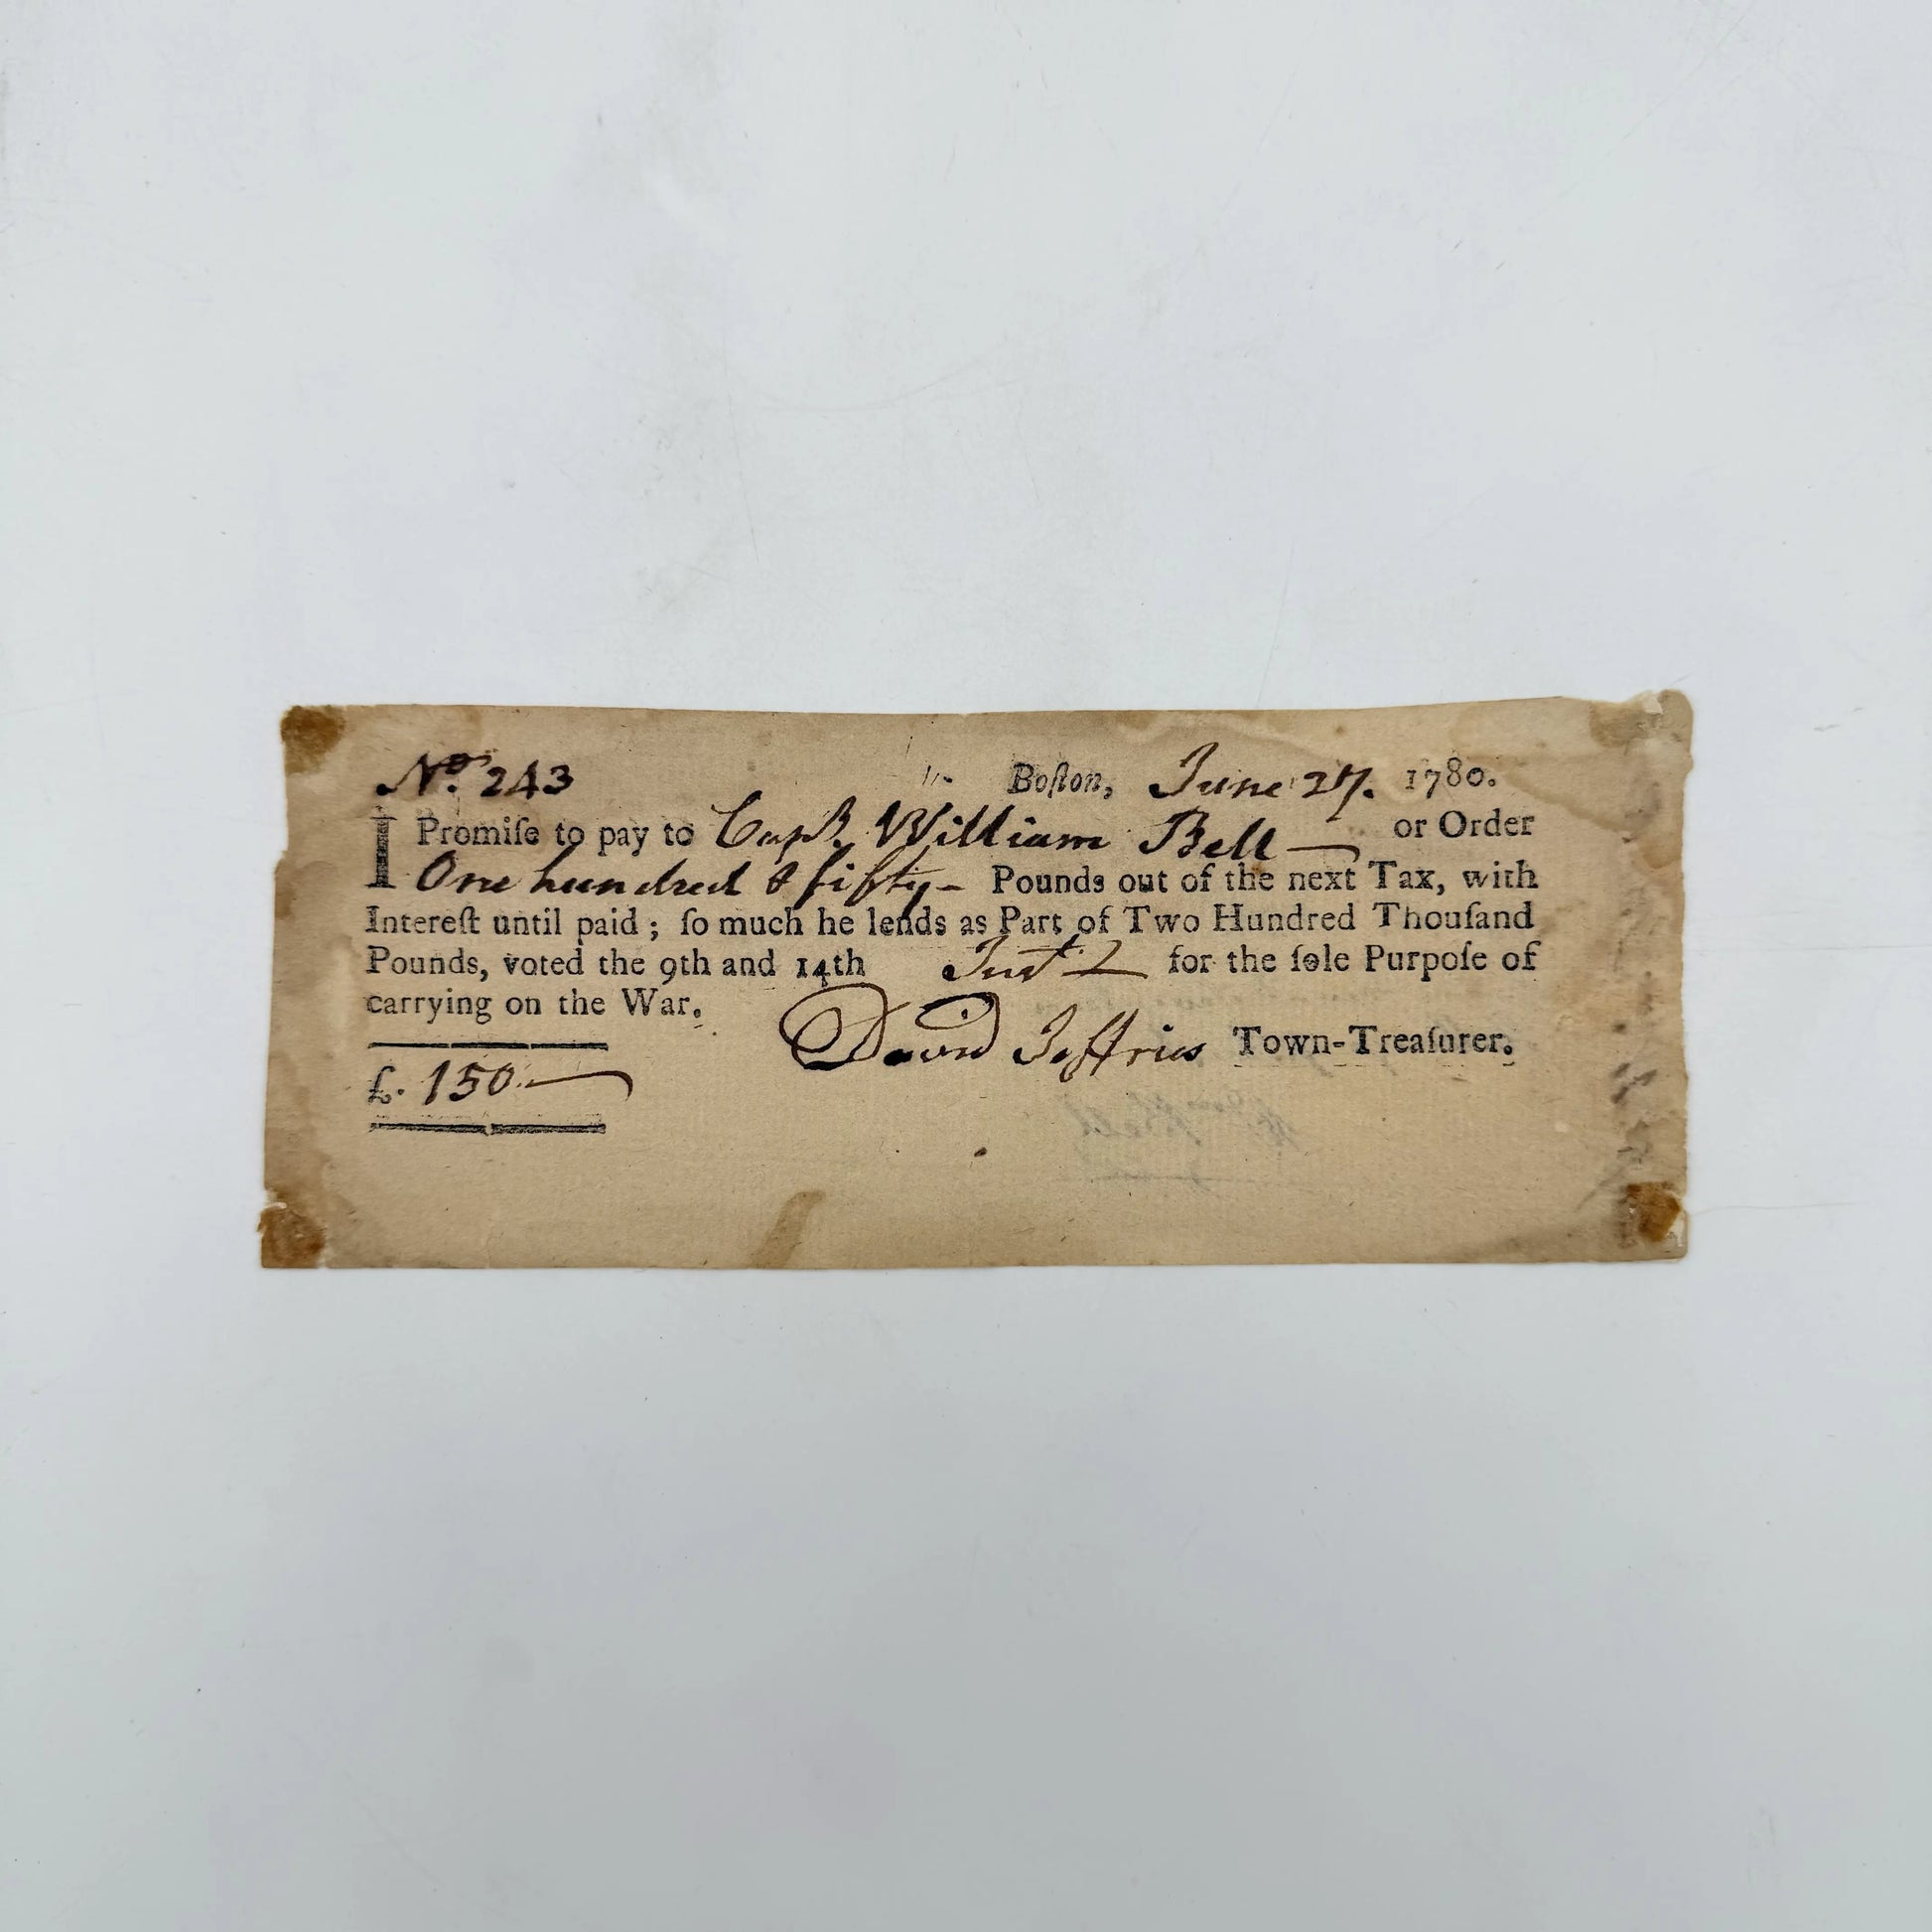 No. 243 Boſton, June 27. 1780.
I Promiſe to pay to Capt. William Bell — or Order
One hundred & fifty - Pounds out of the next Tax, with
Intereſt until paid ; ſo much he lends as Part of Two Hundred Thouſand
Pounds, voted the 9th and 14th Inst for the ſole Purpoſe of
carrying on the War.
David Jeffries Town-Treaſurer.
£. 150.—